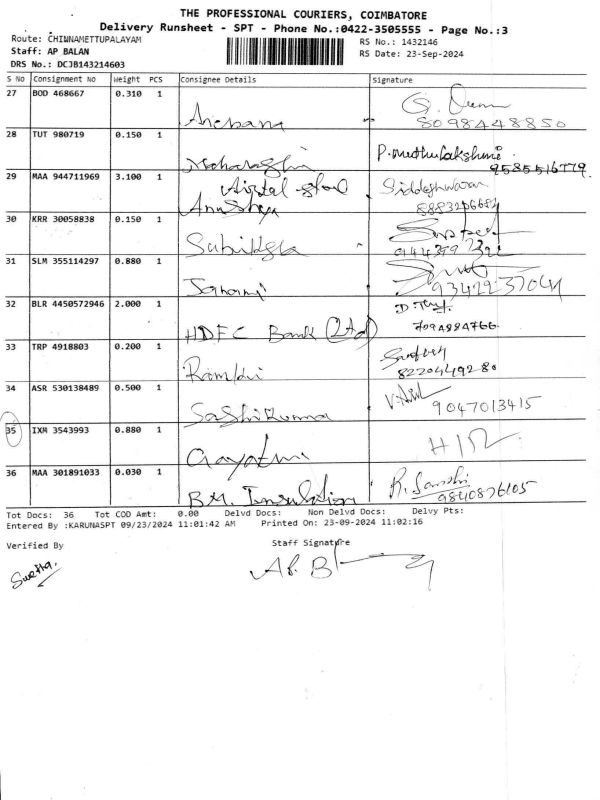 THE PROFESSIONAL COURIERS, COIMBATORE
Delivery Runsheet - SPT - Phone No.:0422-3505555 - Page No.:3
Route: CHINNAMETTUPALAYAM RS No.: 1432146
Staff: AP BALAN RS Date: 23-Sep-2024
DRS No.: DCJB143214603
S No Consignment No Weight PCS Consignee Details Signature
27 BOD 468667 0.310 1 Archana 8098448850
28 TUT 980719 0.150 1 P. Muthulakshmi 9585516779
29 MAA 944711969 3.100 1 Airtel Anushya Siddeshwaran
30 KRR 30058838 0.150 1
31 SLM 355114297 0.880 1
32 BLR 4450572946 2.000 1 HDFC Bank (Ltd) 7094884766
33 TRP 4918803 0.200 1 8220449280
34 ASR 530138489 0.500 1 Sashikumar 9047013415
35 IXM 3543993 0.880 1 Gayatri
36 MAA 301891033 0.030 1 B.M. Insulation 9840876105
Tot Docs: 36 Tot COD Amt: 0.00 Delvd Docs: Non Delvd Docs: Delvy Pts:
Entered By :KARUNASPT 09/23/2024 11:01:42 AM Printed On: 23-09-2024 11:02:16
Verified By Staff Signature
Swetha. AP. B